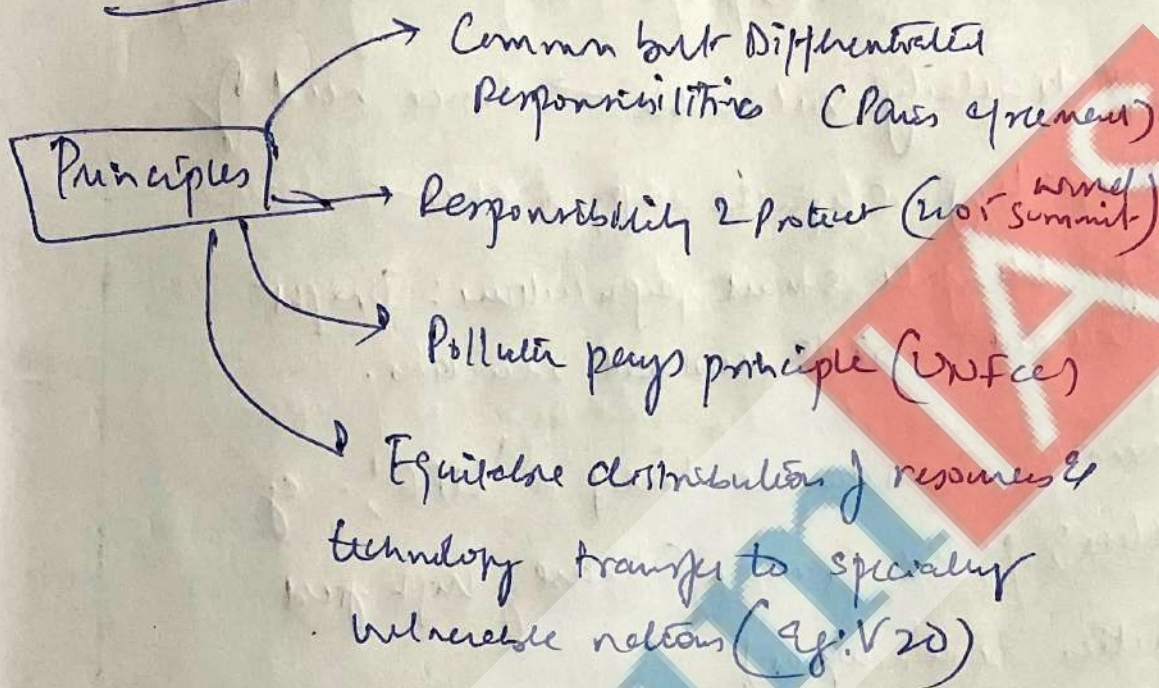 Common but Differentiated
Responsibilities (Paris agreement)
Principles
Responsibility 2 Protect (2005 world
summit)
Polluter pays principle (UNFCCC)
Equitable distribution of resources &
technology transfer to specially
vulnerable nations (Eg: V20)
IAS